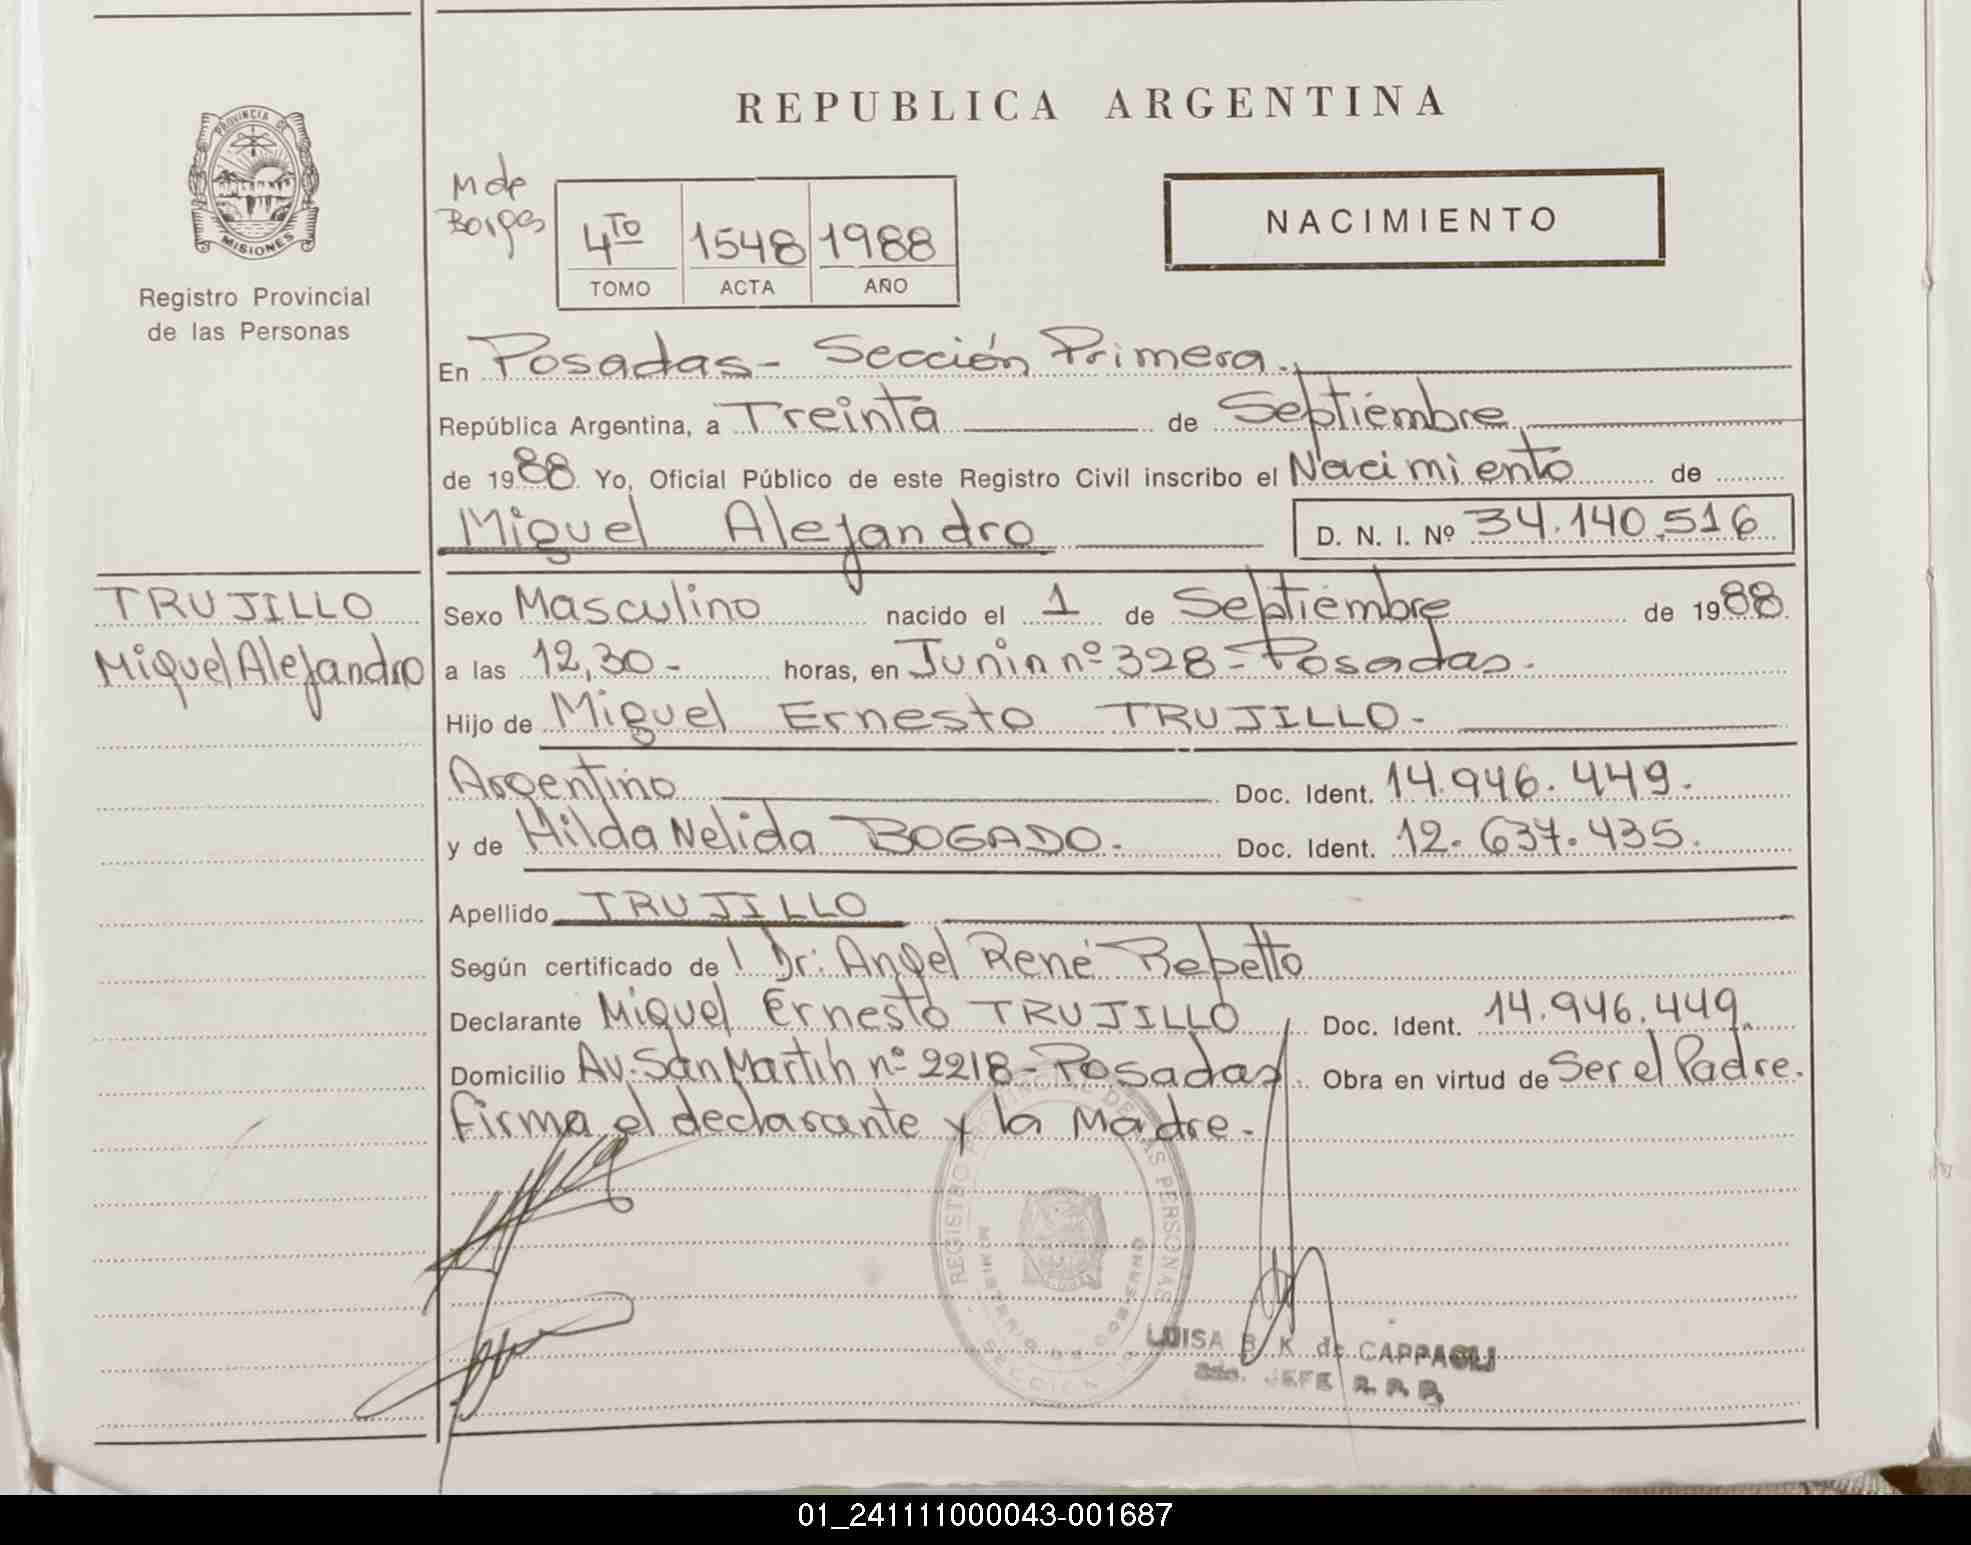 REPUBLICA ARGENTINA
PROVINCIA DE
MISIONES
Registro Provincial
de las Personas
M de
Borges
4TO 1548 1988
TOMO ACTA AÑO
NACIMIENTO
En Posadas - Sección Primera.
República Argentina, a Treinta de Septiembre
de 1988 Yo, Oficial Público de este Registro Civil inscribo el Nacimiento de
Miguel Alejandro D. N. I. Nº 34.140.516
TRUJILLO
Miguel Alejandro
Sexo Masculino nacido el 1 de Septiembre de 1988.
a las 12,30- horas, en Junin nº 328 - Posadas.
Hijo de Miguel Ernesto TRUJILLO-
Argentino Doc. Ident. 14.946.449.
y de Hilda Nelida BOGADO. Doc. Ident. 12.637.435.
Apellido TRUJILLO
Según certificado de l Dr: Angel René Rebetto
Declarante Miguel Ernesto TRUJILLO Doc. Ident. 14.946.449.
Domicilio Av. San Martin nº 2218 - Posadas Obra en virtud de Ser el Padre.
firma el declarante y la Madre.
REGISTRO PROVINCIAL DE LAS PERSONAS
MINISTERIO DE GOBIERNO
SECCION 1º
LUISA B. K. de CAPPAGLI
JEFE R. P. P.
01_241111000043-001687